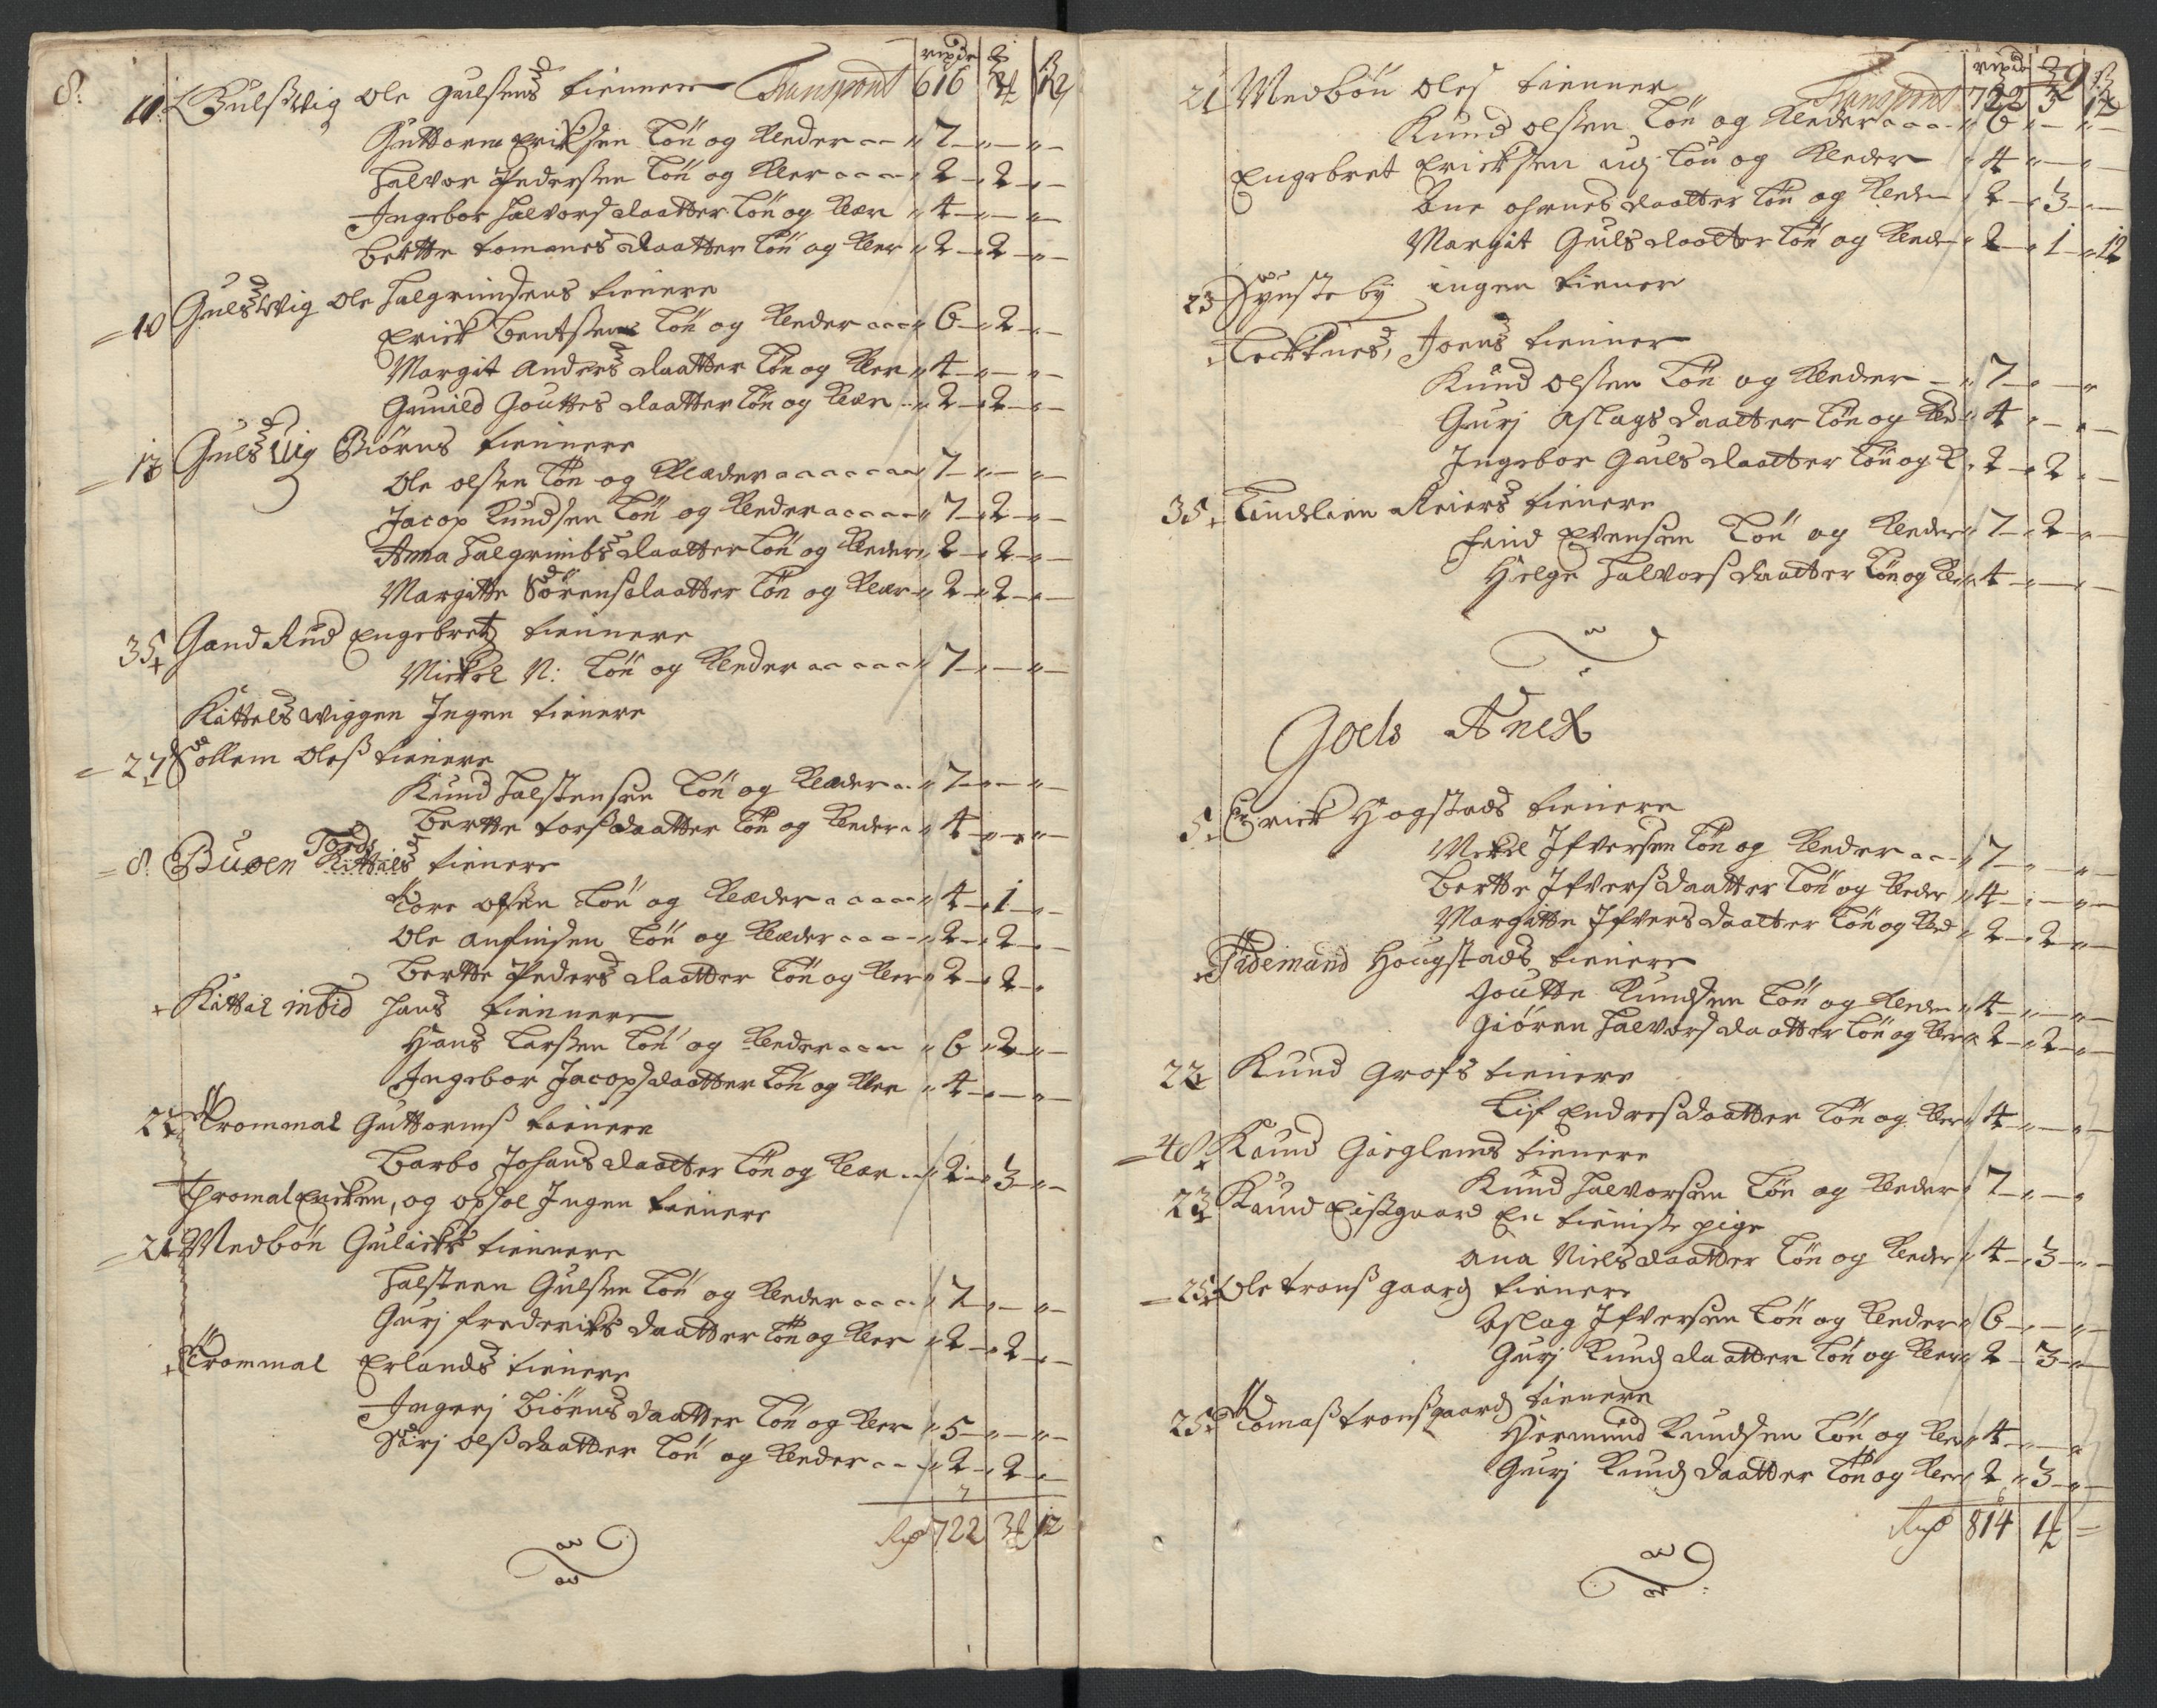 8.
rixdr
10. Gulßwig Ole Gulsens tienner Transport 616
Guttorm Ericksen Løn og Kleder 7
Halvor Pedersen Løn og Kler 2 2
Ingebor Halvors daatter Løn og Klær 4
Berthe tomanes daatter Løn og Kler 2 2
10 Gulswig Ole Halgrimsens tienere
Erick Bentsen Løn og Kleder 6 2
Margit Anders daatter Løn og Kler 4
Gunild Gouttes daatter Løn og Klær 2 2
Gulsvig Biørns tiennere
Ole olsen Løn og Klæder 7
Jacop Knudsen Løn og Kleder 7 2
Anna Halgrimbs daatter Løn og Kleder 2 2
Margitte Sørens daatter Løn og Klær 2 2
35 Gandrud Engebretz tiennere
Mickel N: Løn og Kleder 7
Kittels wiggen Ingen tienere
27 Sollem Oleß tienere
Knud Halstensen Løn og Klæder 7
Berthe torß daatter Løn og Kleder 4
8. Buoen Tords Kittils tienere
Tore olsen Løn og Klæder 4 1
Ole Anfindsen Løn og Klæder 2 2
Berthe Peders daatter Løn og Kler 2 2
Kittil ibid Hans tiennere
Hans Larsen Løn og Kleder 6 2
Ingebor Jacops daatter Løn og Kler 4
22 Trommal Guttormß tienere
Barbo Johans daatter Løn og Klær 2 3
Tromal Eicken, og opsal Ingen tienere
21 Medbøn Gulicks tiennere
Halsteen Gulsen Løn og Kleder 7
Gurj fredericks daatter Løn og Kler 2 2
Trommal Erlands tienere
Ingerj Biørns daatter Løn og Kler 5
Sirj olß daatter Løn og Kleder 2 2
722 12
rixdr 9
21 Medbøn Oles tienner Transport 722
Knud olsen Løn og Kleder 6
Engebret Ericksen Løn og Kleder 4
Løn og Kleder 2 3
Margit Guls daatter Løn og Kleder 2 1 12
23 ingen tiener
Joens tienner
Knud olsen Løn og Kleder 7
Gurj Aslags daatter Løn og Kled 4
Ingebor Guls daatter Løn og K 2 2
35 Lindelien Reiers tienere
find Evensen Løn og Kleder 7 2
Helge Halvors daatter Løn og Kler 4
Goels Anex
5. Erick Hogstads tienere
Mickel Ifversen Løn og Kleder 7
Berthe Ifverß daatter Løn og Kleder 4
Margitte Ifvers daatter Løn og Kled 2 2
Tidemand Hougstads tienere
Goutte Knudsen Løn og Kleder 4
Giøren Halvors daatter Løn og Kler 2 2
22 Knud Grofs tienere
Lif Endreß daatter Løn og Kler 4
48 Knud Giøglems tienere
Knud Halvorsen Løn og Kleder 7
23 Knud Eißgaard En tieniste pige
Ana Niels daatter Løn og Kleder 4 3
25 Ole tronß gaard tienere
Aslag Ifversen Løn og Kleder 6
Gurj Knudz daatter Løn og Kler 2 3
25 Tomaß tronßgaard tienere
Hermund Knudsen Løn og Kler 4
Gurj Knudz daatter Løn og Kler 2 3
814